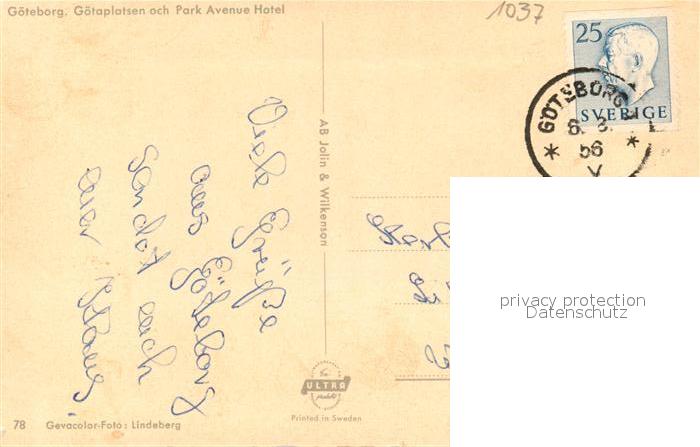 Göteborg. Götaplatsen och Park Avenue Hotel
1037
25
SVERIGE
GÖTEBORG
6. 8.
56
Viele Grüße
aus Göteborg
sendet euch
euer Klaus.
AB Jolin & Wilkenson
privacy protection
Datenschutz
ULTRA
Printed in Sweden
78 Gevacolor-Foto: Lindeberg